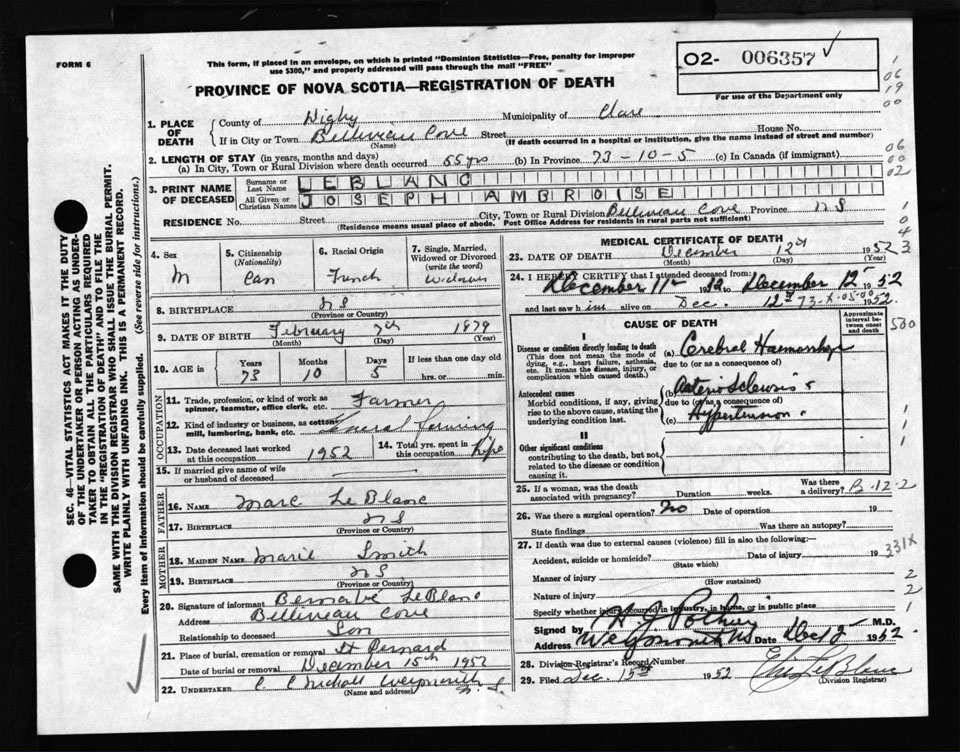 FORM 6
This form, if placed in an envelope, on which is printed "Dominion Statistics—Free, penalty for improper
use $300," and properly addressed will pass through the mail "FREE"
O2- 006357
For use of the Department only
PROVINCE OF NOVA SCOTIA—REGISTRATION OF DEATH
1. PLACE OF DEATH { County of Digby Municipality of Clare
If in City or Town Belliveau Cove Street House No.
(Name) (If death occurred in a hospital or institution, give the name instead of street and number)
2. LENGTH OF STAY (in years, months and days)
(a) In City, Town or Rural Division where death occurred 55 yrs (b) In Province 73-10-5 (c) In Canada (if immigrant)
3. PRINT NAME OF DECEASED { Surname or Last Name LEBLANC
All Given or Christian Names JOSEPH AMBROISE
RESIDENCE No. Street City, Town or Rural Division Belliveau Cove Province N S
(Residence means usual place of abode. Post Office Address for residents in rural parts not sufficient)
4. Sex M
5. Citizenship (Nationality) Can
6. Racial Origin French
7. Single, Married, Widowed or Divorced (write the word) Widower
8. BIRTHPLACE N S
(Province or Country)
9. DATE OF BIRTH February 7th 1879
(Month) (Day) (Year)
10. AGE in Years 73 Months 10 Days 5 If less than one day old
hrs. or min.
OCCUPATION
11. Trade, profession, or kind of work as spinner, teamster, office clerk, etc. Farmer
12. Kind of industry or business, as cotton mill, lumbering, bank, etc. General Farming
13. Date deceased last worked at this occupation 1952
14. Total yrs. spent in this occupation Life
15. If married give name of wife or husband of deceased
FATHER
16. NAME Marc LeBlanc
17. BIRTHPLACE N S
(Province or Country)
MOTHER
18. MAIDEN NAME Marie Smith
19. BIRTHPLACE N S
(Province or Country)
20. Signature of informant Bernabé LeBlanc
Address Belliveau Cove
Relationship to deceased Son
21. Place of burial, cremation or removal St Bernard
Date of burial or removal December 15th 1952
22. UNDERTAKER C. E Nicholl Weymouth N. S.
(Name and address)
MEDICAL CERTIFICATE OF DEATH
23. DATE OF DEATH December 12th 1952
(Month) (Day) (Year)
24. I HEREBY CERTIFY that I attended deceased from:
December 11th 1952 to December 12th 1952
and last saw him alive on Dec. 12th 1952.
CAUSE OF DEATH
Approximate interval between onset and death
I
Disease or condition directly leading to death
(This does not mean the mode of dying, e.g., heart failure, asthenia, etc. It means the disease, injury, or complication which caused death.)
(a) Cerebral Haemorrhage
due to (or as a consequence of)
Antecedent causes
Morbid conditions, if any, giving rise to the above cause, stating the underlying condition last.
(b) Arteriosclerosis &
due to (or as a consequence of)
(c) Hypertension.
II
Other significant conditions
contributing to the death, but not related to the disease or condition causing it.
25. If a woman, was the death associated with pregnancy? Duration weeks. Was there a delivery? B-12-2
26. Was there a surgical operation? No Date of operation 19
State findings Was there an autopsy?
27. If death was due to external causes (violence) fill in also the following:
Accident, suicide or homicide? Date of injury 19 331X
(State which)
Manner of injury
(How sustained)
Nature of injury
Specify whether injury occurred in industry, in home, or in public place
Signed by H J Pothier M.D.
Weymouth NS Date Dec 15 1952.
28. Division Registrar's Record Number
29. Filed Dec. 15th 1952 LeBlanc
(Division Registrar)
SEC. 46—VITAL STATISTICS ACT MAKES IT THE DUTY
OF THE UNDERTAKER OR PERSON ACTING AS UNDERTAKER
TO OBTAIN ALL THE PARTICULARS REQUIRED
IN THE "REGISTRATION OF DEATH" AND TO FILE THE
SAME WITH THE DIVISION REGISTRAR WHO SHALL ISSUE THE BURIAL PERMIT.
WRITE PLAINLY WITH UNFADING INK. THIS IS A PERMANENT RECORD.
Every item of Information should be carefully supplied. (See reverse side for instructions.)